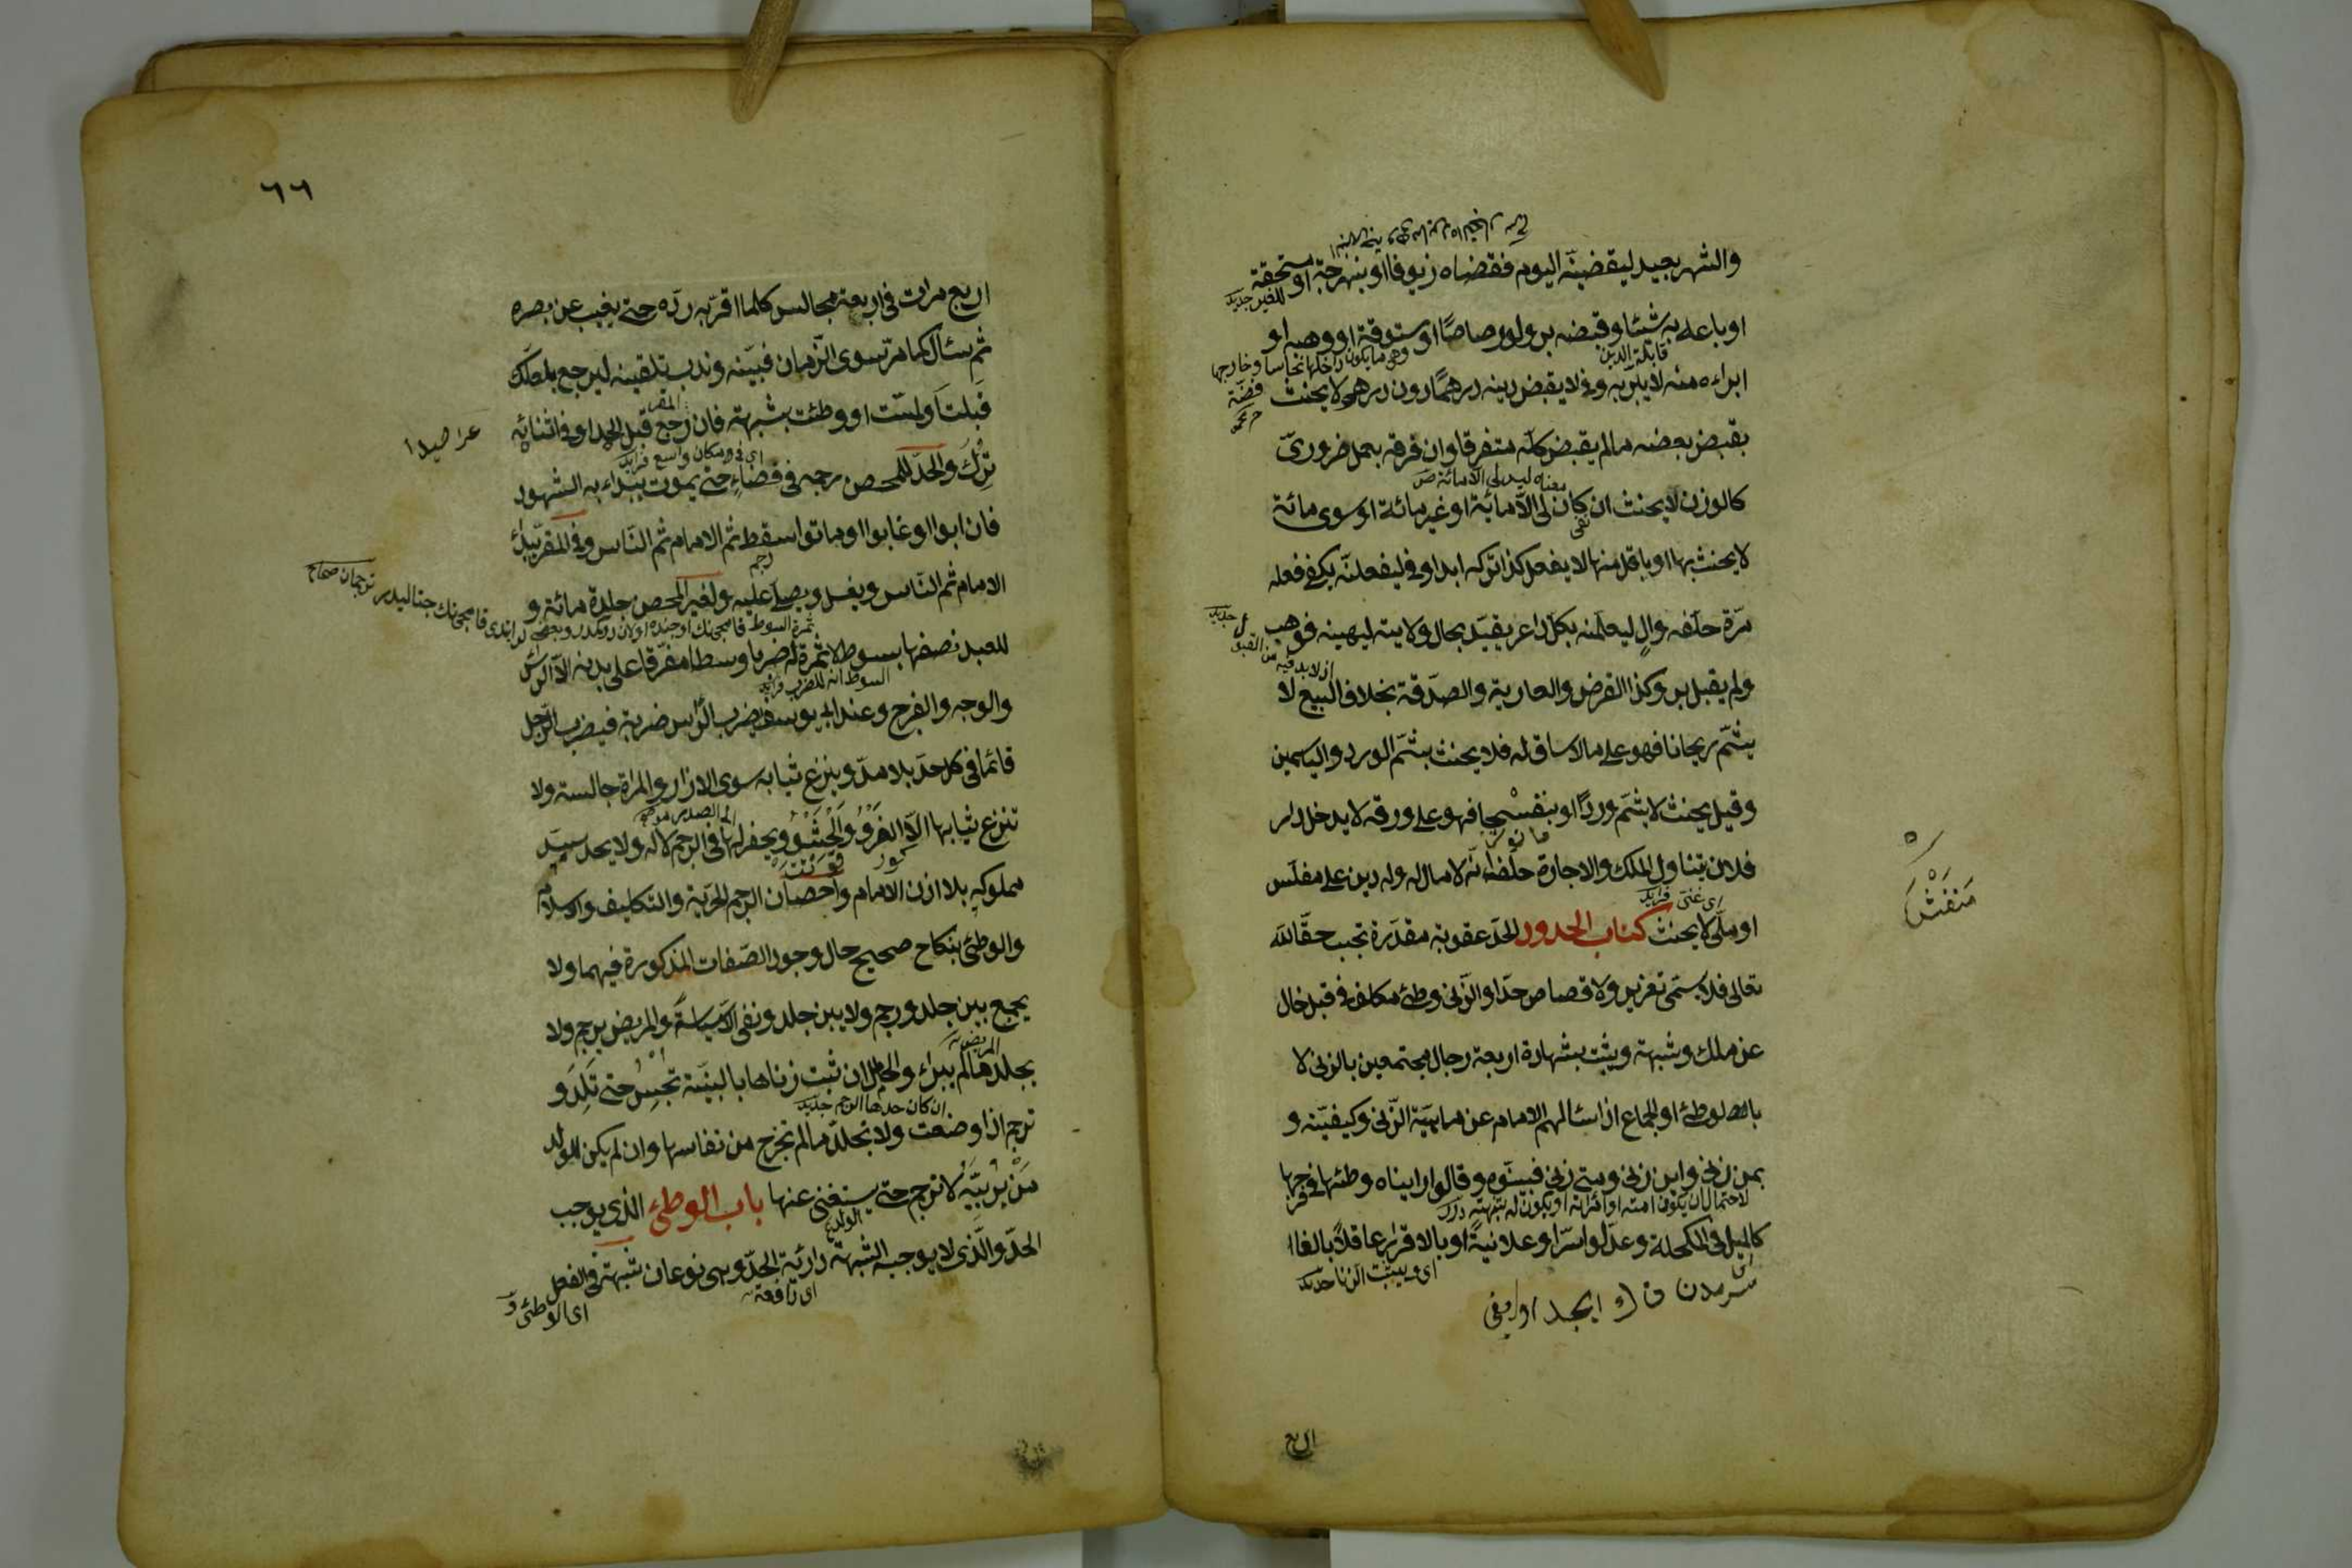 والشهر بعيد ليقضينّه اليوم فقضاه زيوفا او بنهرجة او مستحقة
للغير جديد
او باعه به شيئا وقبضه بر ولو رصاصًا او ستوقة او وهبه او
قابلة الدين
وهى ما يكون داخلها نحاسا وخارجها
فضّة
ابراءه منه لا يبرّ به وفى لا يقبض دينه درهمًا دون درهم لا يحنث
بقبض بعضه مالم يقبض كلّه متفرقا وان فرقه بعمل ضرورىّ
معناه ليس لى الا مائة
كالوزن لا يحنث ان كان لى الّا مائة او غير مائة او سوى مائة
لا يحنث بها او باقل منها لا يفعل كذا تركه ابدا وفى ليفعلنّه يكفى فعله
مرّة حلّفه والٍ ليعلمنه بكلّ داعر يقيّد بحال ولايته ليهبنه فوهب
جديد
اذ لا بد فيه من القبول
ولم يقبل بر وكذا القرض والعارية والصدقة بخلاف البيع لا
يشمّ ريحانا فهو على ما لا ساق له فلا يحنث بشمّ الورد والياسمين
وقيل يحنث لا يشمّ وردًا او بنفسْجا فهو على ورقه لا يدخل دار
فلان يتناول الملك والاجارة حلف انّه لا مال له وله دين على مفلّس
اى غنى فرايد
او ملّى لا يحنث كتاب الحدود الحدّ عقوبة مقدّرة تجب حقّا لله
تعالى فلا يسمّى تعزير ولا قصاص حدّا والزّنى وطئ مكلف فى قبل خال
عن ملك وشبهة ويثبت بشهادة اربعة رجال مجتمعين بالزنى لا
بالوطئ او الجماع اذا سئالهم الامام عن ماهيّة الزّنى وكيفيّته و
بمن زنى واين زنى ومتى زنى فبيّنوه وقالوا رايناه وطئها فى فرجها
لاحتمال ان يكون امته او امراته او يكون له شبهة درر
كالميل فى المكحلة وعدّلوا سرّا وعلانيةً او بالاقرار عاقلًا بالغا
اى ويثبت الزنا جديد
اربع
٦٦
اربع مرات فى اربعة مجالس كلما اقرّ به ردّه حتى يغيب عن بصره
ثم سئال كما مرّ سوى الزّمان فبيّنه وندب تلقينه ليرجع بلعلّك
قبلت او لمست او وطئت بشبهة فان رجع قبل الحد او فى اثنائه
المقر
اى فى مكان واسع فرايد
ترك والحدّ للمحصن رجمه فى فضاءٍ حتى يموت يبداء به الشهود
فان ابوا او غابوا او ماتوا سقط ثم الامام ثم النّاس وفى المقرّ يبداء
رجم
الامام ثم النّاس ويغسل ويصلّى عليه ولغير المحصن جلدة مائة و
للعبد نصفها بسوط لا ثمرة له ضربا وسطا مفرّقا على بدنه الّا الراس
والوجه والفرج وعند ابى يوسف يضرب الرّاس ضربة فيضرب الرّجل
قائما فى كل حدّ بلا مدّ وينزع ثيابه سوى الازار والمراة جالسة ولا
تنزع ثيابها الّا الفَرْوُ والحَشْوُ ويحفر لها فى الرجم لا له ولا يحد سيّد
الى الصدر
مملوكه بلا اذن الامام واحصان الرجم الحرّية والتكليف والاسلام
والوطئ بنكاح صحيح حال وجود الصّفات المذكورة فيهما ولا
يجمع بين جلد ورجم ولا بين جلد ونفى الّا سياسةً والمريض يرجم ولا
يجلد مالم يبراء والحامل ان ثبت زناها بالبيّنة تحبس حتى تلد و
ان كان حدها الرجم جديد
ترجم اذا وضعت ولا تجلد مالم تخرج من نفاسها وان لم يكن للولد
من يربّيه لا ترجم حتى يستغنى عنها باب الوطئ الذى يوجب
الولد
الحدّ والّذى لا يوجبه الشبهة دارئة الحدّ وهى نوعان شبهة فى الفعل
اى دافعة
اى الوطئ